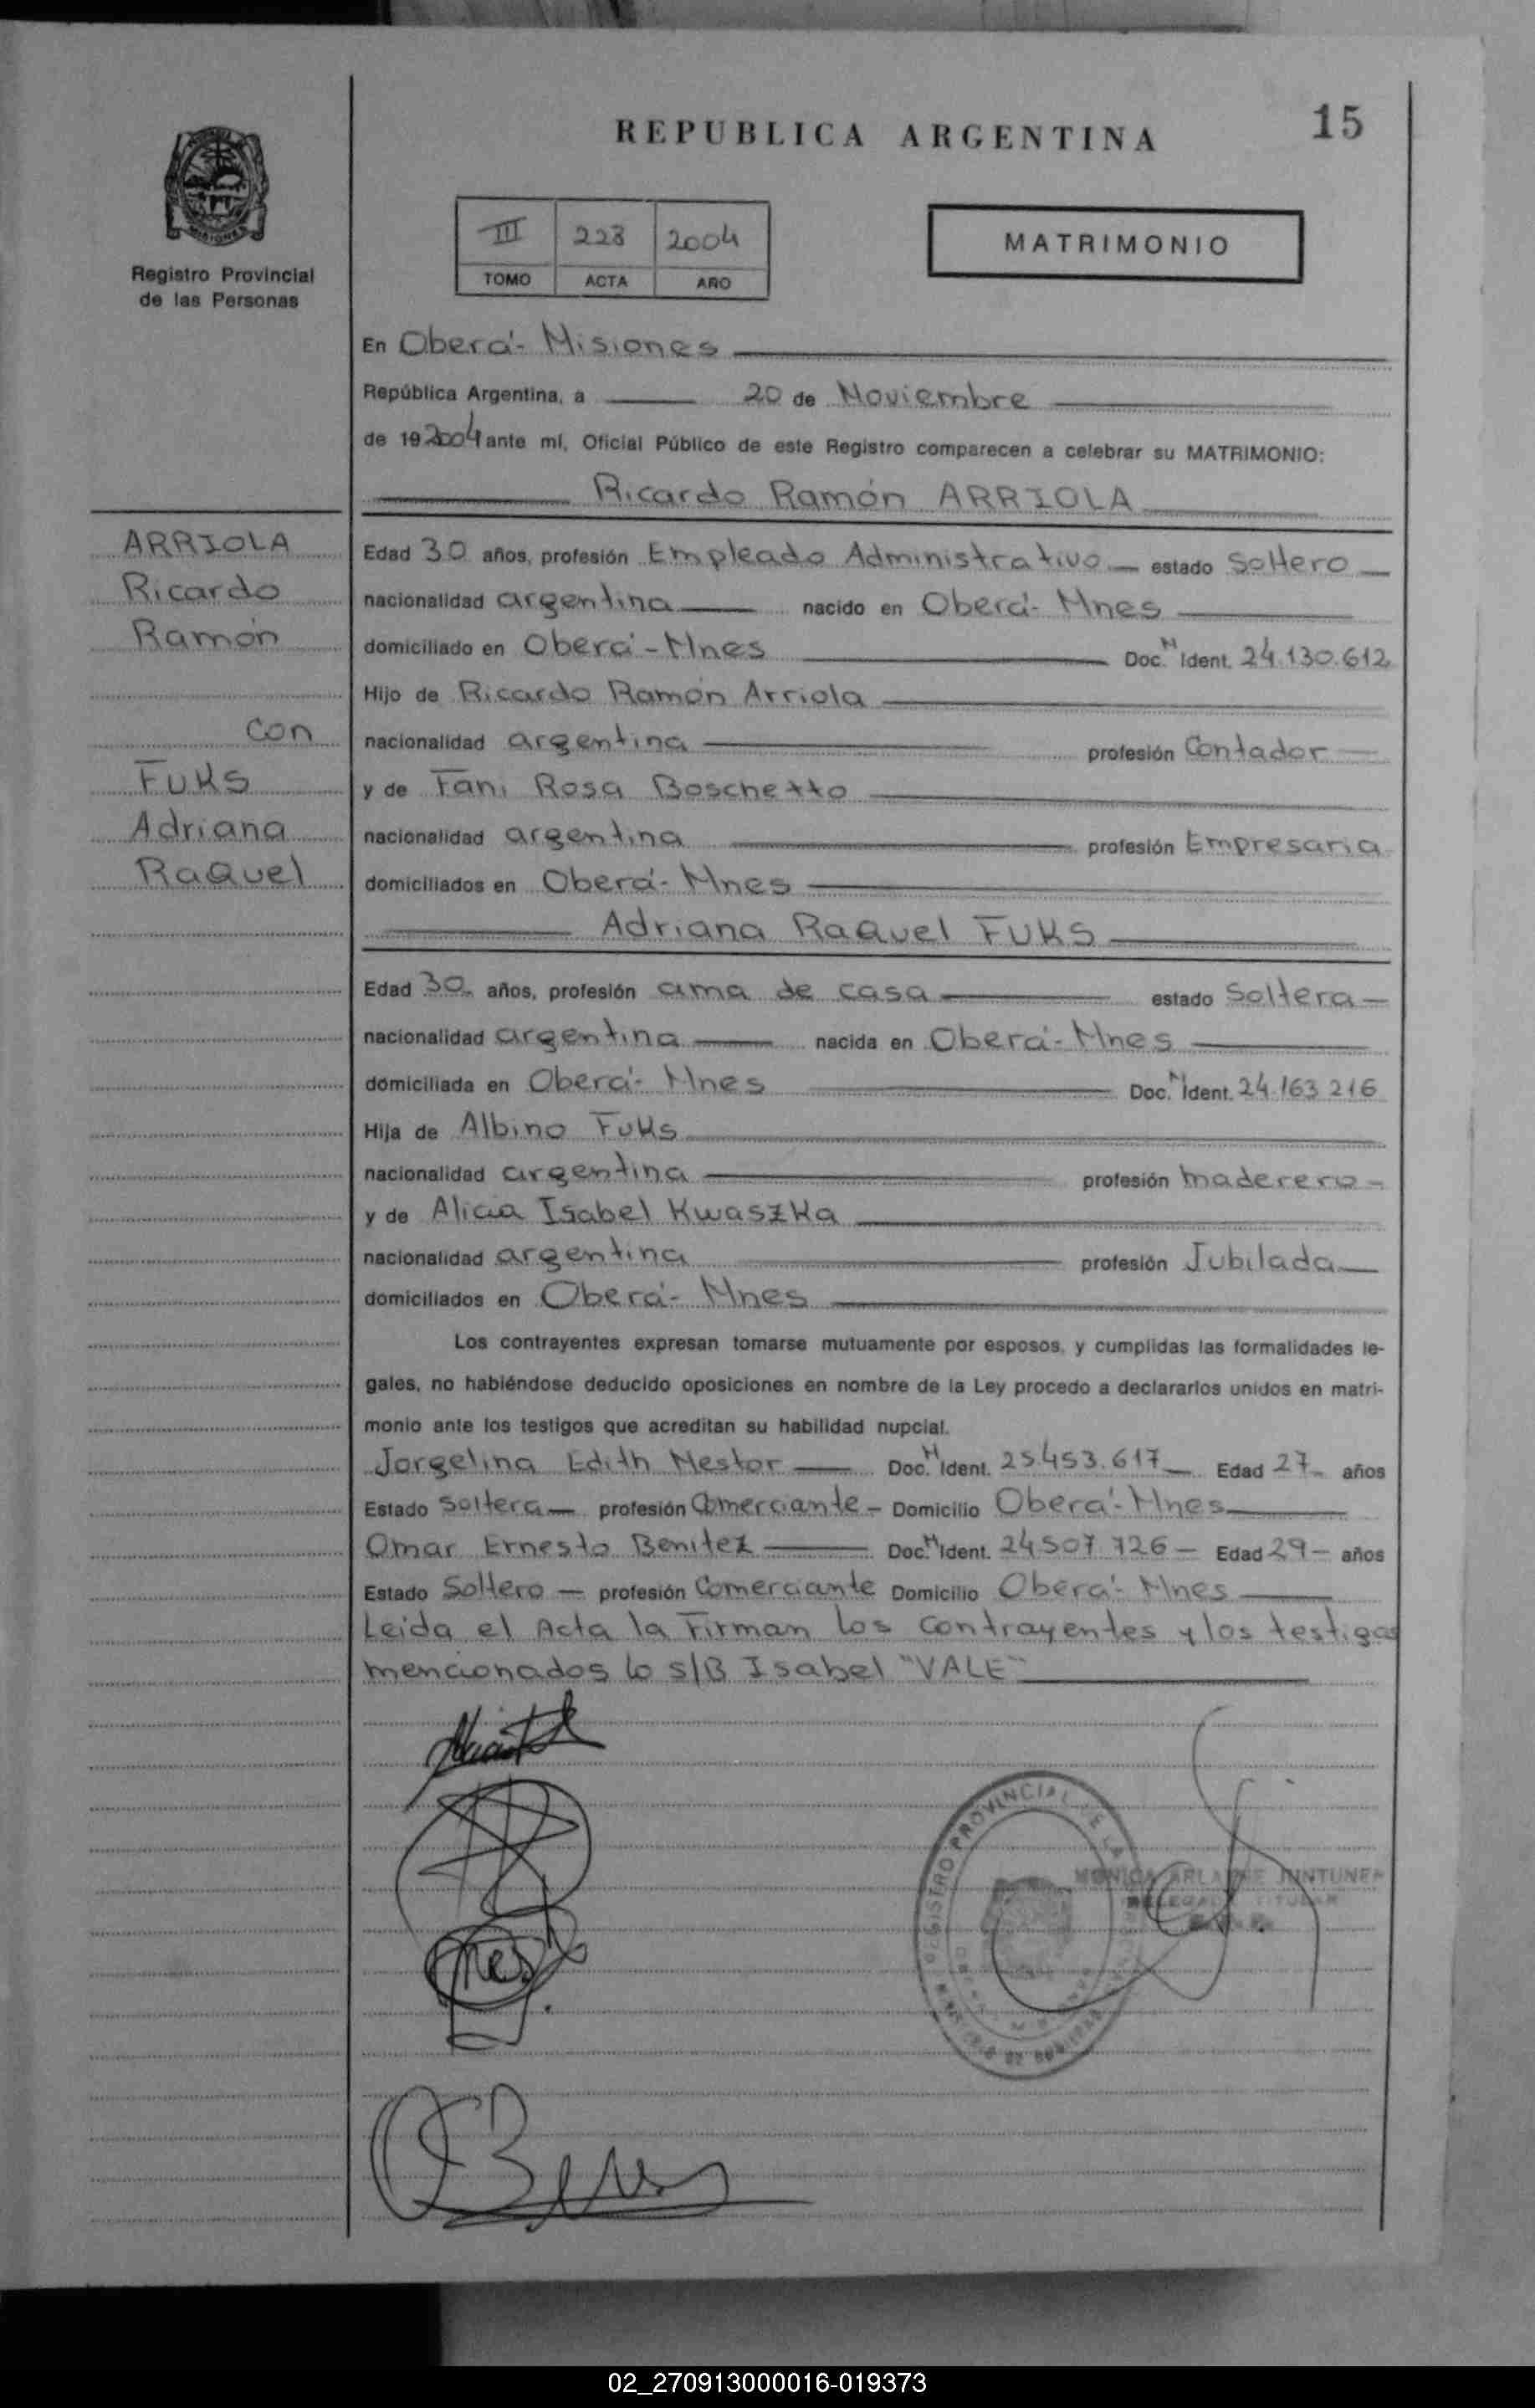 REPUBLICA ARGENTINA
15
MISIONES
Registro Provincial
de las Personas
III 223 2004
TOMO ACTA AÑO
MATRIMONIO
En Oberá - Misiones
República Argentina, a 20 de Noviembre
de 19 2004 ante mí, Oficial Público de este Registro comparecen a celebrar su MATRIMONIO:
Ricardo Ramón ARRIOLA
ARRIOLA
Ricardo
Ramón
con
Fuks
Adriana
Raquel
Edad 30 años, profesión Empleado Administrativo estado Soltero
nacionalidad argentina nacido en Oberá - Mnes
domiciliado en Oberá - Mnes Doc. N Ident. 24.130.612
Hijo de Ricardo Ramón Arriola
nacionalidad argentina profesión Contador
y de Fani Rosa Boschetto
nacionalidad argentina profesión Empresaria
domiciliados en Oberá - Mnes
Adriana Raquel FUKS
Edad 30 años, profesión ama de casa estado Soltera
nacionalidad argentina nacida en Oberá - Mnes
domiciliada en Oberá - Mnes Doc. N Ident. 24.163.216
Hija de Albino Fuks
nacionalidad argentina profesión maderero
y de Alicia Isabel Kwaszka
nacionalidad argentina profesión Jubilada
domiciliados en Oberá - Mnes
Los contrayentes expresan tomarse mutuamente por esposos, y cumplidas las formalidades le-
gales, no habiéndose deducido oposiciones en nombre de la Ley procedo a declararlos unidos en matri-
monio ante los testigos que acreditan su habilidad nupcial.
Jorgelina Edith Nestor Doc. N Ident. 25.453.617 Edad 27 años
Estado Soltera profesión Comerciante - Domicilio Oberá - Mnes
Omar Ernesto Benitez Doc. N Ident. 24507 726 - Edad 29 - años
Estado Soltero - profesión Comerciante Domicilio Oberá - Mnes
Leida el Acta la Firman los contrayentes y los testigos
mencionados lo S/B Isabel "VALE"
REGISTRO PROVINCIAL DE LA
MONICA
TITULAR
02_270913000016-019373